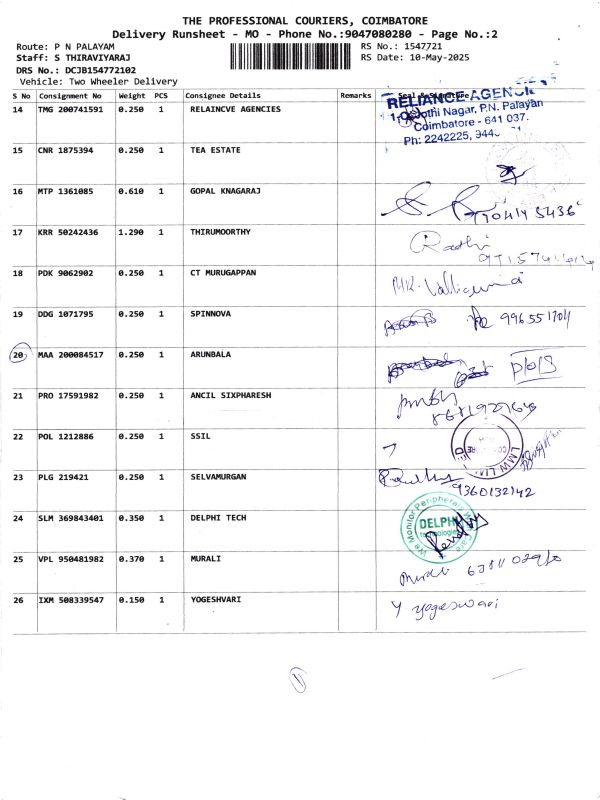 THE PROFESSIONAL COURIERS, COIMBATORE
Delivery Runsheet - MO - Phone No.:9047080280 - Page No.:2
Route: P N PALAYAM
Staff: S THIRAVIYARAJ
DRS No.: DCJB154772102
Vehicle: Two Wheeler Delivery
RS No.: 1547721
RS Date: 10-May-2025
S No Consignment No Weight PCS Consignee Details Remarks Seal & Signature
14 TMG 200741591 0.250 1 RELAINCVE AGENCIES
RELIANCE AGENCIES
Jothi Nagar, P.N. Palayan
Coimbatore - 641 037.
Ph: 2242225,
15 CNR 1875394 0.250 1 TEA ESTATE
16 MTP 1361085 0.610 1 GOPAL KNAGARAJ
17 KRR 50242436 1.290 1 THIRUMOORTHY
Radhi
18 PDK 9062902 0.250 1 CT MURUGAPPAN
19 DDG 1071795 0.250 1 SPINNOVA
20 MAA 200084517 0.250 1 ARUNBALA
21 PRO 17591982 0.250 1 ANCIL SIXPHARESH
22 POL 1212886 0.250 1 SSIL
23 PLG 219421 0.250 1 SELVAMURGAN
9360132142
24 SLM 369843401 0.350 1 DELPHI TECH
We Monitor Peripherals
DELPHI
technologies
25 VPL 950481982 0.370 1 MURALI
Murali
26 IXM 508339547 0.150 1 YOGESHVARI
Y yogeswari